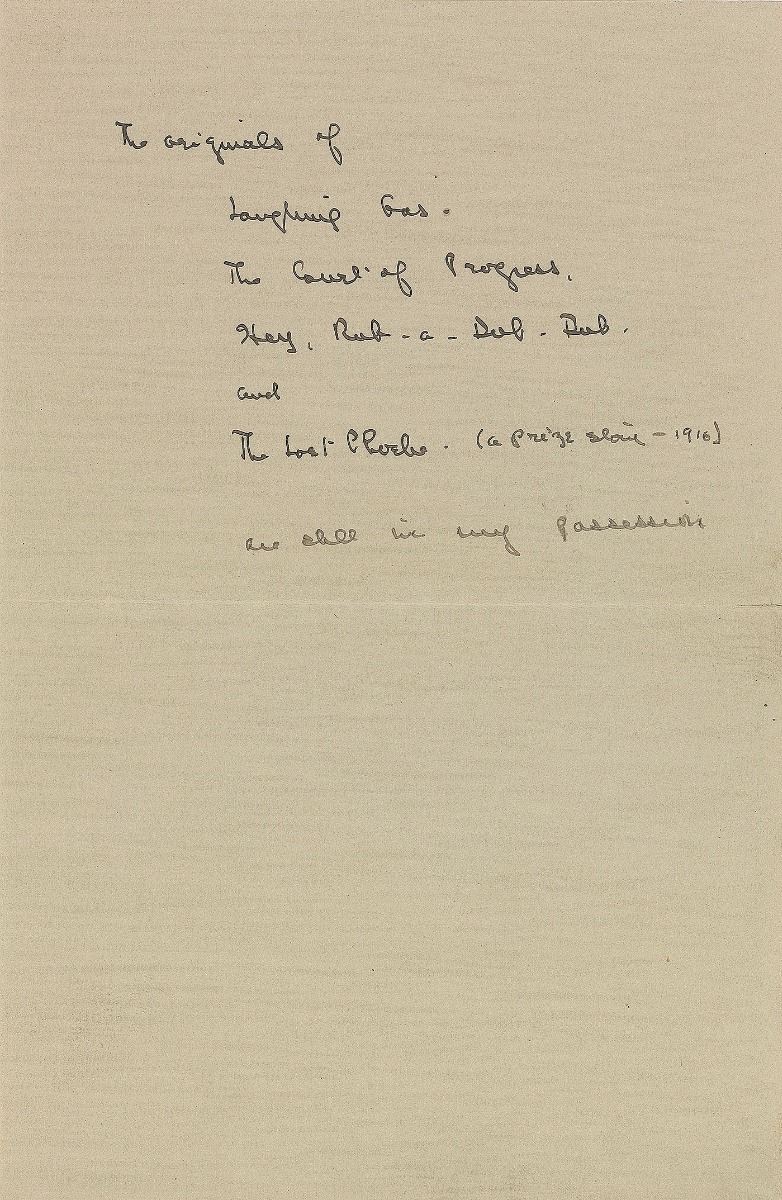 The originals of
Laughing Gas.
The Court of Progress,
Hey, Rub-a-Dub-Dub.
and
The Lost Phoebe. (a prize story - 1916)
are still in my possession